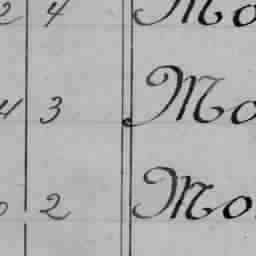 2 4 Mo
4 3 Mo
2 Mo